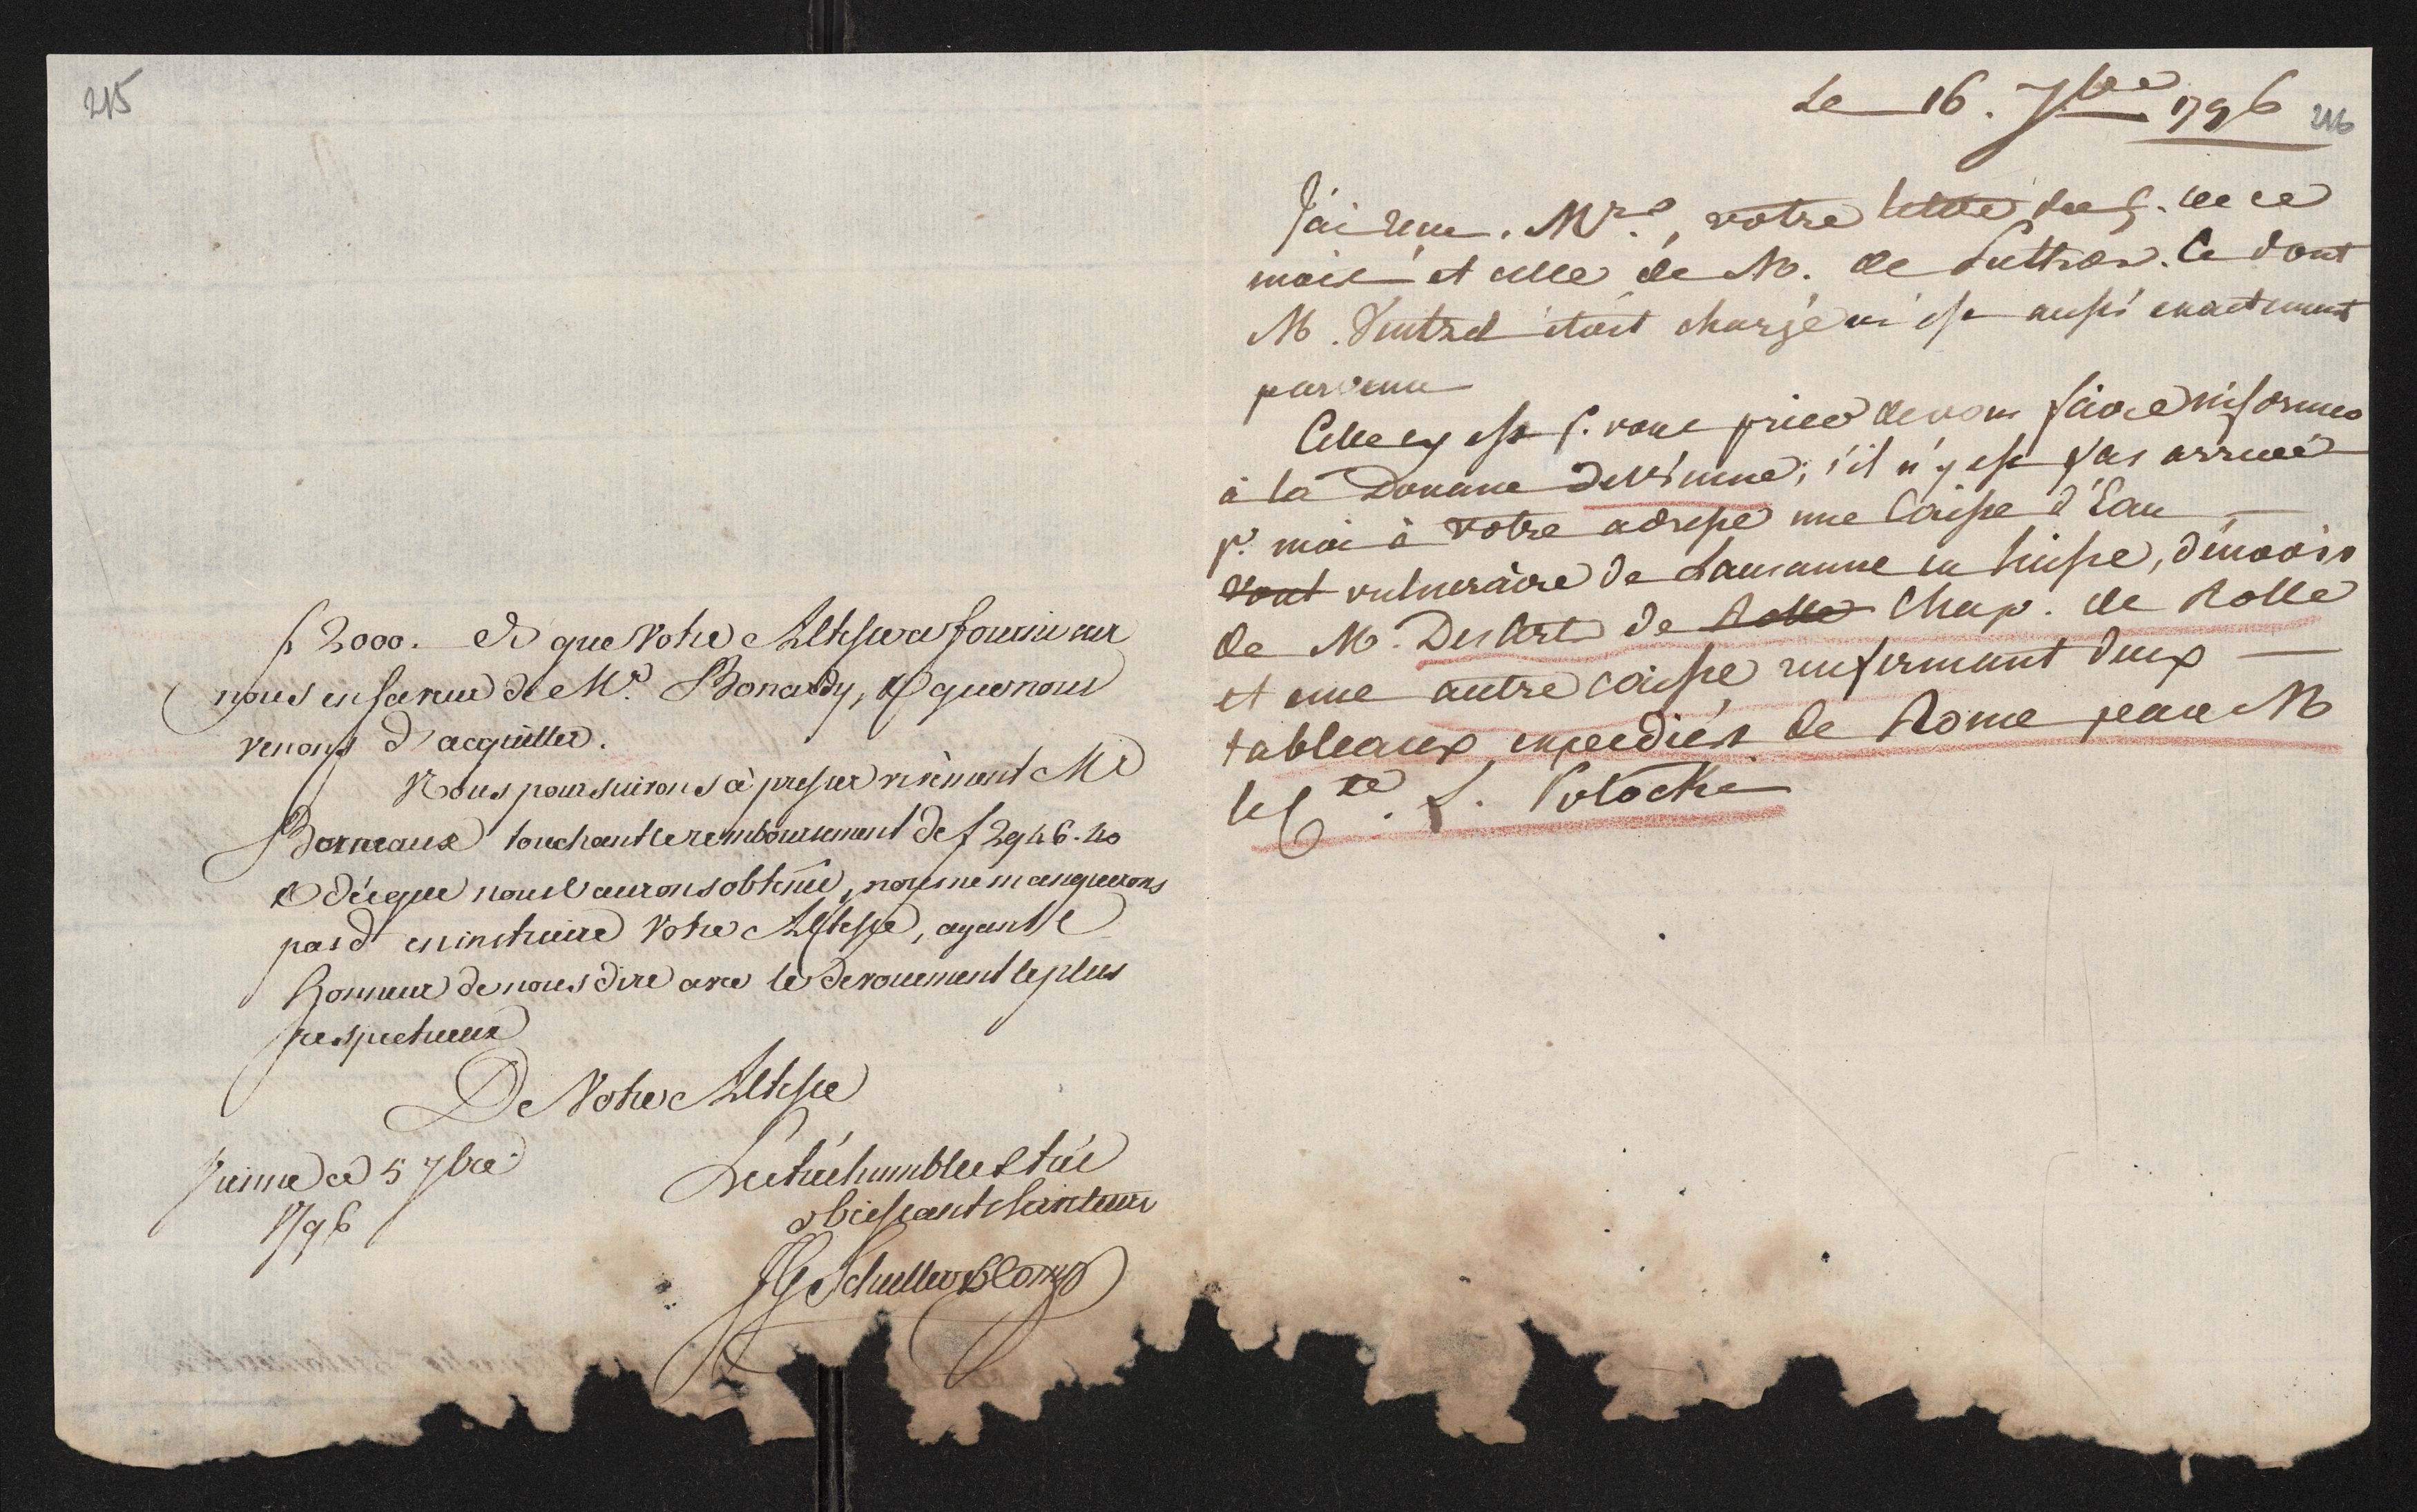 215
f 2000. — & que Votre Altesse a fourni sur
nous en faveur de Mr. Bonardy, & que nous
venons d'acquitter.
Nous poursuivrons à presser vivement Mr
Barneaux touchant le remboursement de f 2946.40
& dès que nous l'aurons obtenu, nous ne manquerons
pas d'en instruire Votre Altesse, ayant l'
honneur de nous dire avec le devouement le plus
respectueux
De Votre Altesse
Vienne ce 5 7bre
1796
Les très humbles & très
obeissants serviteurs
JG Schuller & Comp
Le 16. 7bre 1796
216
J'ai reçu. Mrs., votre lettre du 5. de ce
mois et celle de M. de . Ce dont
M. étoit chargé m'est aussi exactement
parvenu
Celle cy est p. vous prier de vous faire informer
à la Douane de Vienne, s'il n'y est pas arrivé
pr. moi à votre adresse une Caisse d'Eau —
vulneraire de Lausanne en Suisse, d'envoi
de M. Desarts de Rolle Chap. de Rolle
et une autre caisse renfermant deux —
tableaux expediés de Rome par M
le Cte. S. Potocki